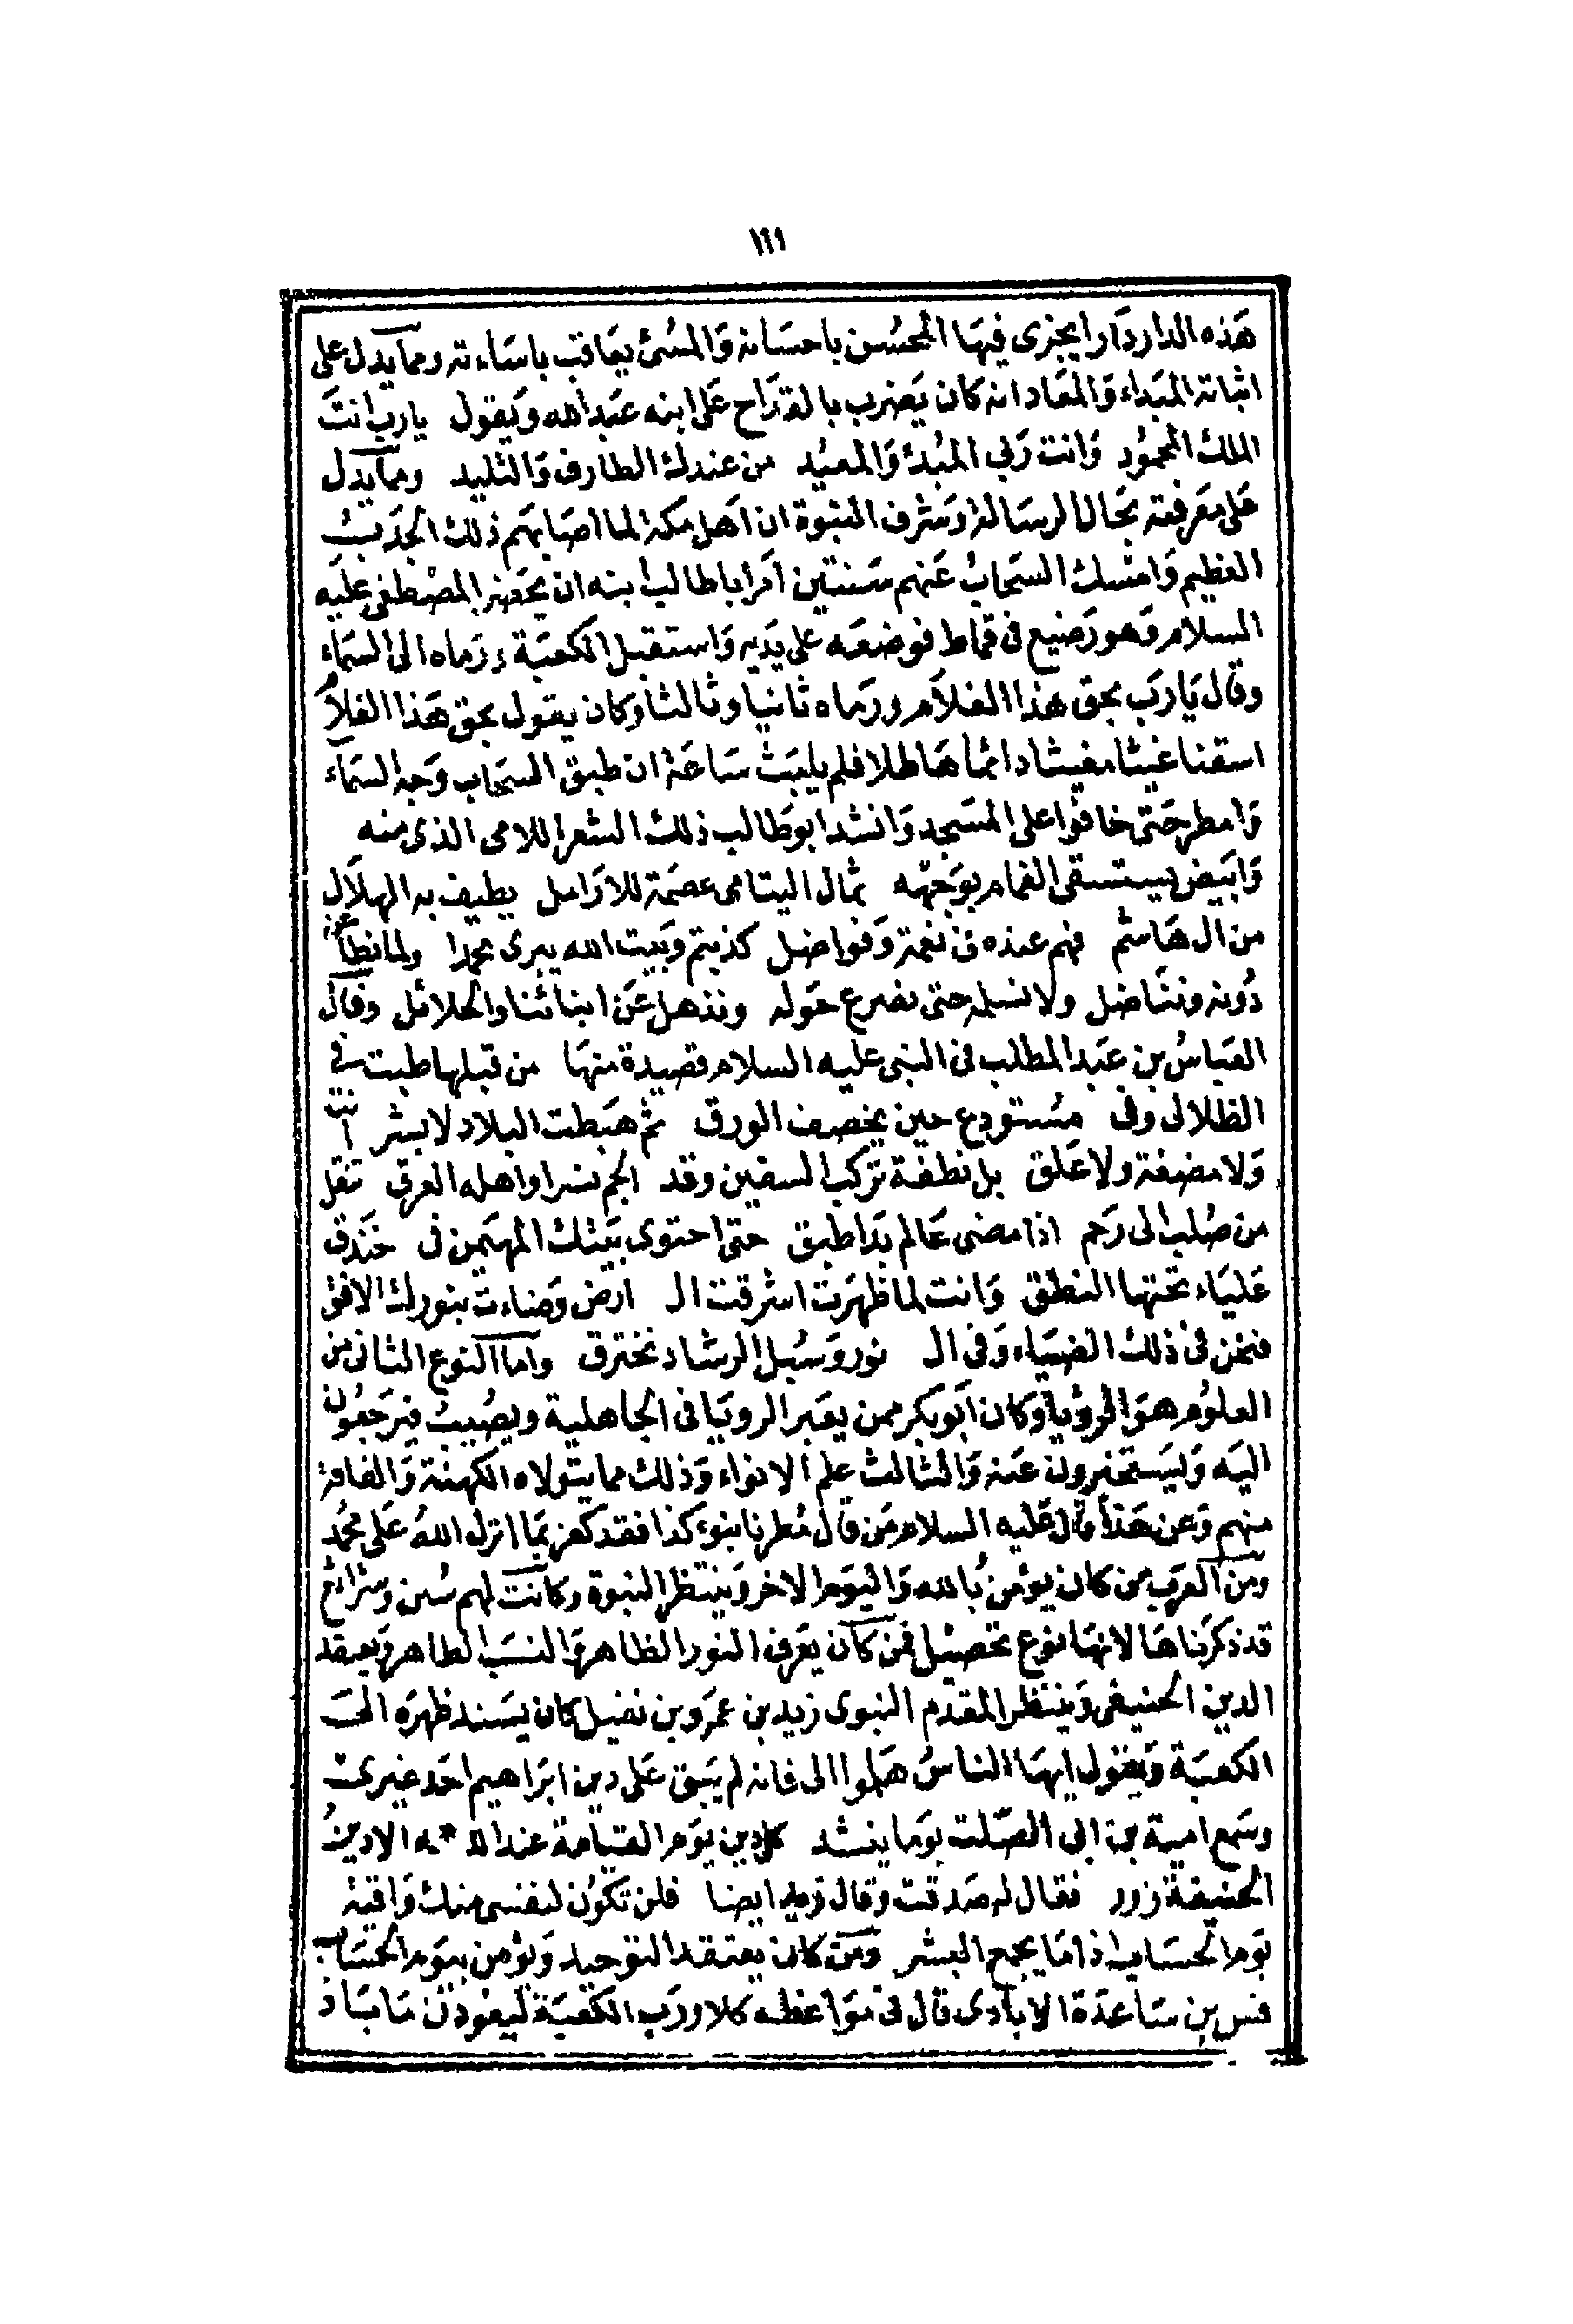 ١١١
هذه الدار دارا يجزى فيها المحسن باحسانه والمسئ يعاقب باساءته ومما يدل على
اثباته المبداء والمعاد انه كان يضرب بالقداح على ابنه عبد الله ويقول يارب انت
الملك المحمود وانت ربي المبدئ والمعيد من عندك الطارف والتليد ومما يدل
على معرفته بحال الرسالة وشرف النبوة ان اهل مكة لما اصابهم ذلك الجدب
العظيم وامسك السحاب عنهم سنتين امر ابا طالب ابنه ان يحضر المصطفى عليه
السلام وهو رضيع في قماط فوضعه على يديه واستقبل الكعبة ورماه الى السماء
وقال يا رب بحق هذا الغلام ورماه ثانيا وثالثا وكان يقول بحق هذا الغلام
اسقنا غيثا مغيثا دائما هاطلا فلم يلبث ساعة ان طبق السحاب وجه السماء
وامطر حتى خافوا على المسجد وانشد ابو طالب ذلك الشعر اللامي الذى منه
وابيض يستسقى الغمام بوجهه ثمال اليتامى عصمة للارامل يطيف به الهلاك
من ال هاشم فهم عنده في نعمة وفواضل كذبتم وبيت الله يبرى محمدا ولما نطاعن
دونه ونناضل ولا نسلمه حتى نصرع حوله ونذهل عن ابنائنا والحلائل وقال
العباس بن عبد المطلب في النبي عليه السلام قصيدة منها من قبلها طبت في
الظلال وفى مستودع حين يخصف الورق ثم هبطت البلاد لا بشر انت
ولا مضغة ولا علق بل نطفة تركب السفين وقد الجم نسرا واهله الغرق تنقل
من صلب الى رحم اذا مضى عالم بدا طبق حتى احتوى بيتك المهيمن في خندق
علياء تحتها النطق وانت لما ظهرت اشرقت ال ارض وضاءت بنورك الافق
فنحن في ذلك الضياء وفي ال نور وسبل الرشاد نخترق واما النوع الثاني من
العلوم هو الرؤيا وكان ابو بكر ممن يعبر الرويا في الجاهلية ويصيب فيرجعون
اليه ويستخبرون عنه والثالث علم الانواء وذلك مما يتولاه الكهنة والقافة
منهم وعن هذا قال عليه السلام من قال مطرنا بنوء كذا فقد كفر بما انزل الله على محمد
ومن العرب من كان يؤمن بالله واليوم الاخر وينتظر النبوة وكانت لهم سنن وشرائع
قد ذكرناها لانها نوع تحصيل فمن كان يعرف النور الظاهر والنسب الطاهر ويعتقد
الدين الحنيفي وينتظر المقدم النبوى زيد بن عمرو بن نفيل كان يسند ظهره الى
الكعبة ويقول ايها الناس هلموا الى فانه لم يبق على دين ابراهيم احد غيرى
وسمع امية بن ابى الصلت يوما ينشد كل دين يوم القيامة عند الل * ه الا دين
الحنيفة زور فقال له صدقت وقال زيد ايضا فلن تكون لنفسى منك واقية
يوم الحساب اذا ما يجمع البشر ومن كان يعتقد التوحيد ويؤمن بيوم الحساب
قس بن ساعدة الايادى قال في مواعظه كلا ورب الكعبة ليعودن ما باد